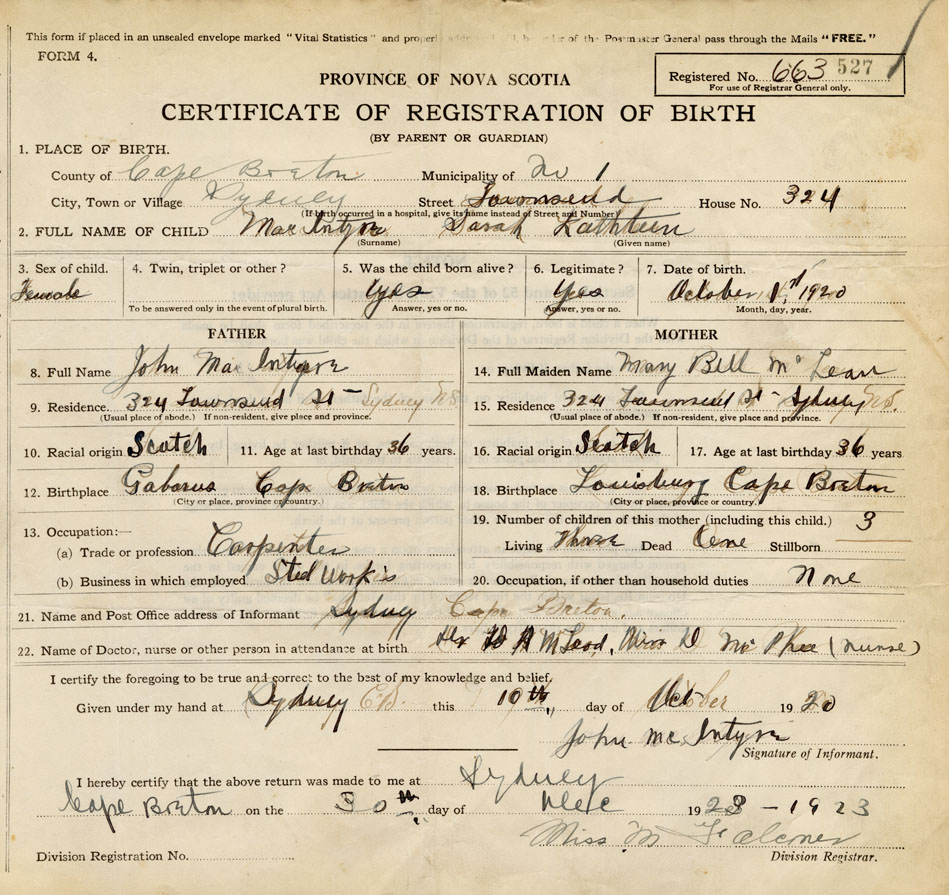 This form if placed in an unsealed envelope marked "Vital Statistics" and properly addressed will, by order of the Postmaster General pass through the Mails "FREE."
FORM 4.
PROVINCE OF NOVA SCOTIA
Registered No. 663 527
For use of Registrar General only.
CERTIFICATE OF REGISTRATION OF BIRTH
(BY PARENT OR GUARDIAN)
1. PLACE OF BIRTH.
County of Cape Breton Municipality of No 1
City, Town or Village Sydney Street Townsend House No. 324
(If birth occurred in a hospital, give its name instead of Street and Number)
2. FULL NAME OF CHILD MacIntyre Sarah Kathleen
(Surname) (Given name)
3. Sex of child. 4. Twin, triplet or other? 5. Was the child born alive? 6. Legitimate? 7. Date of birth.
Female Yes Yes October 1st 1920
To be answered only in the event of plural birth. Answer, yes or no. Answer, yes or no. Month, day, year.
FATHER MOTHER
8. Full Name John MacIntyre
14. Full Maiden Name Mary Bell Mc Lean
9. Residence. 324 Townsend St - Sydney NS
(Usual place of abode.) If non-resident, give place and province.
15. Residence 324 Townsend St - Sydney NS.
(Usual place of abode.) If non-resident, give place and province.
10. Racial origin Scotch 11. Age at last birthday 36 years.
16. Racial origin Scotch 17. Age at last birthday 36 years
12. Birthplace Gabarus Cape Breton
(City or place, province or country.)
18. Birthplace Louisburg Cape Breton
(City or place, province or country.)
13. Occupation:—
(a) Trade or profession Carpenter
(b) Business in which employed Steel Works
19. Number of children of this mother (including this child.) 3
Living Three Dead One Stillborn
20. Occupation, if other than household duties None
21. Name and Post Office address of Informant Sydney Cape Breton.
22. Name of Doctor, nurse or other person in attendance at birth McLeod, Miss D Mc Phee (nurse)
I certify the foregoing to be true and correct to the best of my knowledge and belief,
Given under my hand at Sydney C.B. this 19th day of October 1920
John McIntyre
Signature of Informant.
I hereby certify that the above return was made to me at Sydney
Cape Breton on the 30th day of Dec 1923 - 1923
Miss M Falconer
Division Registration No. Division Registrar.